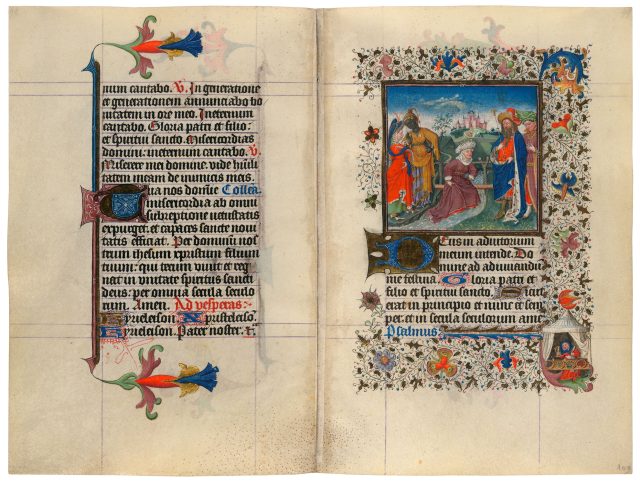 num cantabo. V. In generatione
et generationem annunciabo ve
ritatem in ore meo. Ineternum
cantabo. Gloria patri et filio:
et spiritui sancto. Misericordias
domini: ineternum cantabo. V.
Miserere mei domine. vide humili
tatem meam de inimicis meis.
Tua nos domine Collecta
misericordia ab omni
subreptione vetustatis
expurget: et capaces sancte noui
tatis efficiat. Per dominum nos
trum ihesum xpristum filium
tuum: qui tecum viuit et reg
nat in unitate spiritus sancti
deus: per omnia secula seculo
rum. Amen. Ad vesperas:
Kyrieleison. Xpristeleison.
Kyrieleison. Pater noster:
Deus in adiutorium
meum intende. Do
mine ad adiuuandu
me festina. Gloria patri et
filio et spiritui sancto. Sicut
erat in principio et nunc et sem
per: et in secula seculorum ame
Psalmus: